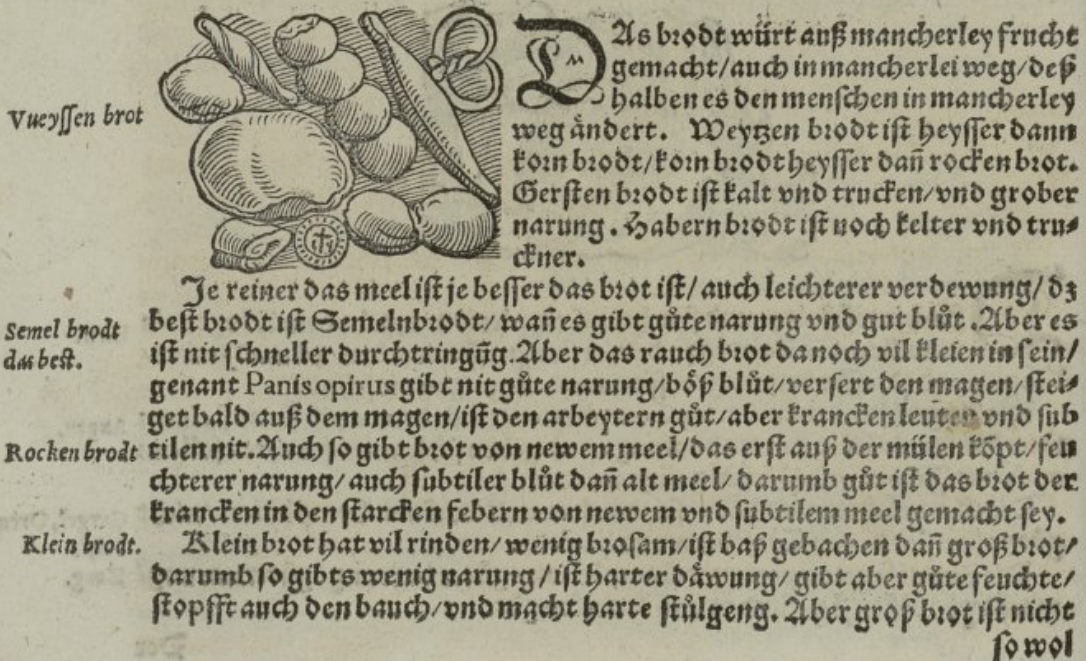 DAs brodt würt auß mancherley frucht
gemacht/auch in mancherlei weg/deß
halben es den menschen in mancherley
Vueyssen brot
weg åndert. Weytzen brodt ist heysser dann
korn brodt/korn brodt heysser dañ rocken brot.
Gersten brodt ist kalt vnd trucken/vnd grober
narung. Habern brodt ist noch kelter vnd tru⸗
ckner.
Je reiner das meel ist je besser das brot ist/ auch leichterer verdewung/ dz
Semel brodt
das best.
best brodt ist Semelnbrodt/ wañ es gibt gůte narung vnd gut blůt. Aber es
ist nit schneller durchtringũg. Aber das rauch brot da noch vil kleien in sein/
genant Panis opirus gibt nit gůte narung/böß blůt/versert den magen/stei⸗
get bald auß dem magen/ist den arbeytern gůt/aber krancken leuten vnd sub
Rocken brodt
tilen nit. Auch so gibt brot von newem meel/das erst auß der mülen kõpt/feu
chterer narung/ auch subtiler blůt dañ alt meel/ darumb gůt ist das brot der
krancken in den starcken febern von newem vnd subtilem meel gemacht sey.
Klein brodt.
Klein brot hat vil rinden/ wenig brosam/ist baß gebachen dañ groß brot/
darumb so gibts wenig narung/ ist harter dåwung/ gibt aber gůte feuchte/
stopfft auch den bauch/vnd macht harte stůlgeng. Aber groß brot ist nicht
so wol